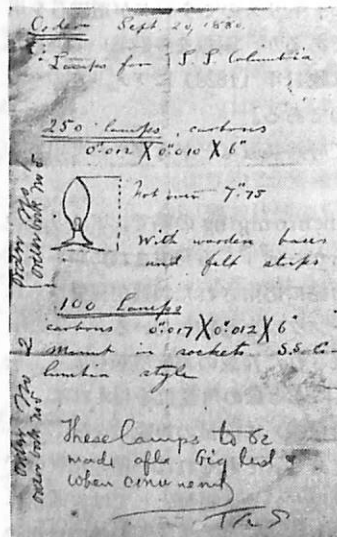 Order Sept. 20, 1880.
Lamps for S.S. Columbia
250 lamps, carbons
0".012 X 0".010 X 6"
Not over 7".75
With wooden bases
and felt strips
Order No 1
Order book No 5
100 lamps
carbons 0".017 X 0".012 X 6"
Mount in sockets S.S. Co-
lumbia style
Order No 2
Order book No 5
These lamps to be
made after big lead
when convenient